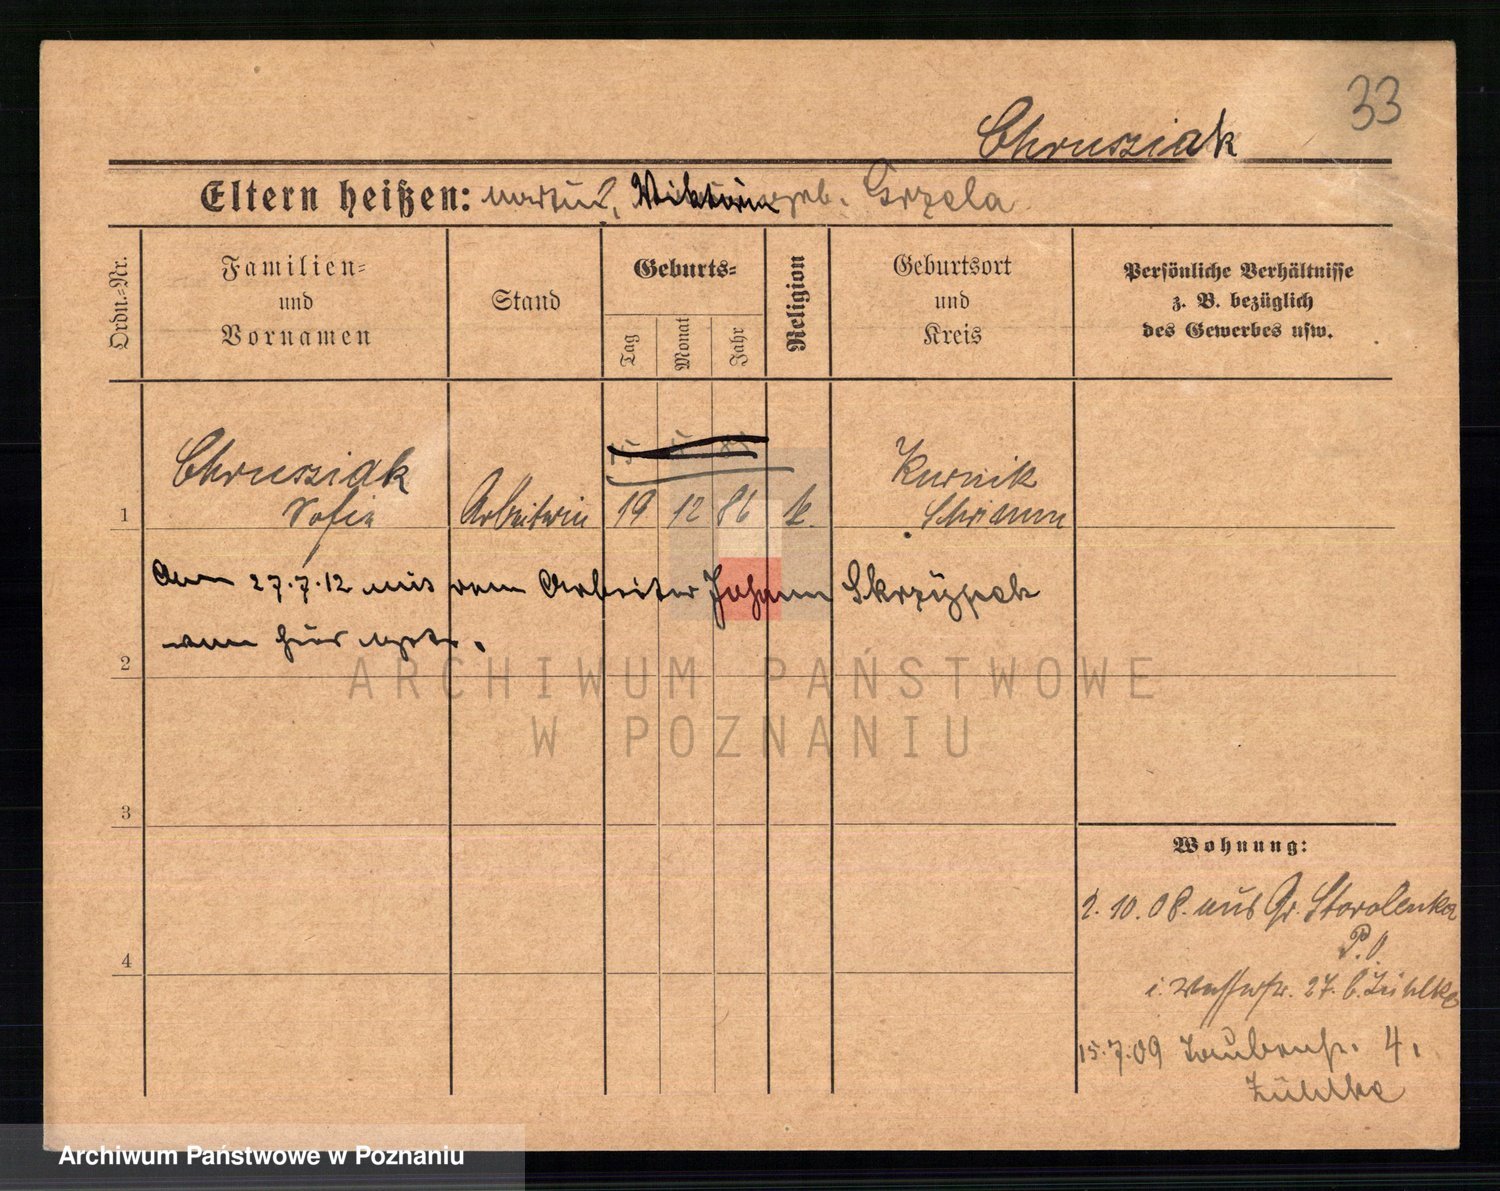 33
Chrusziak
Eltern heißen: Viktoria geb. Grzela
Ordn.-Nr.
Familien-
und
Vornamen
Stand
Geburts-
Tag
Monat
Jahr
Religion
Geburtsort
und
Kreis
Persönliche Verhältnisse
z. B. bezüglich
des Gewerbes usw.
Chrusziak
Kurnik
1 Sofia Arbeiterin 19 12 86 k. Schrimm
Am 27.7.12 mit dem Arbeiter Johann Skrzypek
2
ARCHIWUM PAŃSTWOWE
W POZNANIU
3
Wohnung:
2.10.08. aus Gr. Starolenka
P.O.
4
i. Wasserstr. 27. b. Zühlke
15.7.09 Taubenstr. 4.
Zühlke
Archiwum Państwowe w Poznaniu